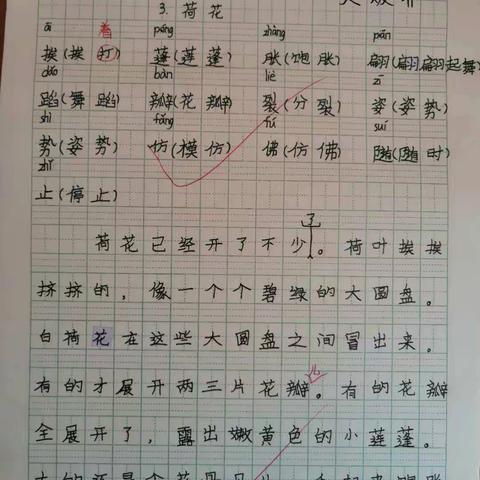 3. 荷花
āi 着 péng zhàng piān
挨(挨打) 蓬(莲蓬) 胀(饱胀) 翩(翩翩起舞)
dǎo bàn liè zī
蹈(舞蹈) 瓣(花瓣) 裂(分裂) 姿(姿势)
shì fǎng fú suí
势(姿势) 仿(模仿) 佛(仿佛) 随(随时)
zhǐ
止(停止)
荷花已经开了不少了。荷叶挨挨
挤挤的，像一个个碧绿的大圆盘。
白荷花在这些大圆盘之间冒出来。
有的才展开两三片花瓣儿。有的花瓣
全展开了，露出嫩黄色的小莲蓬。